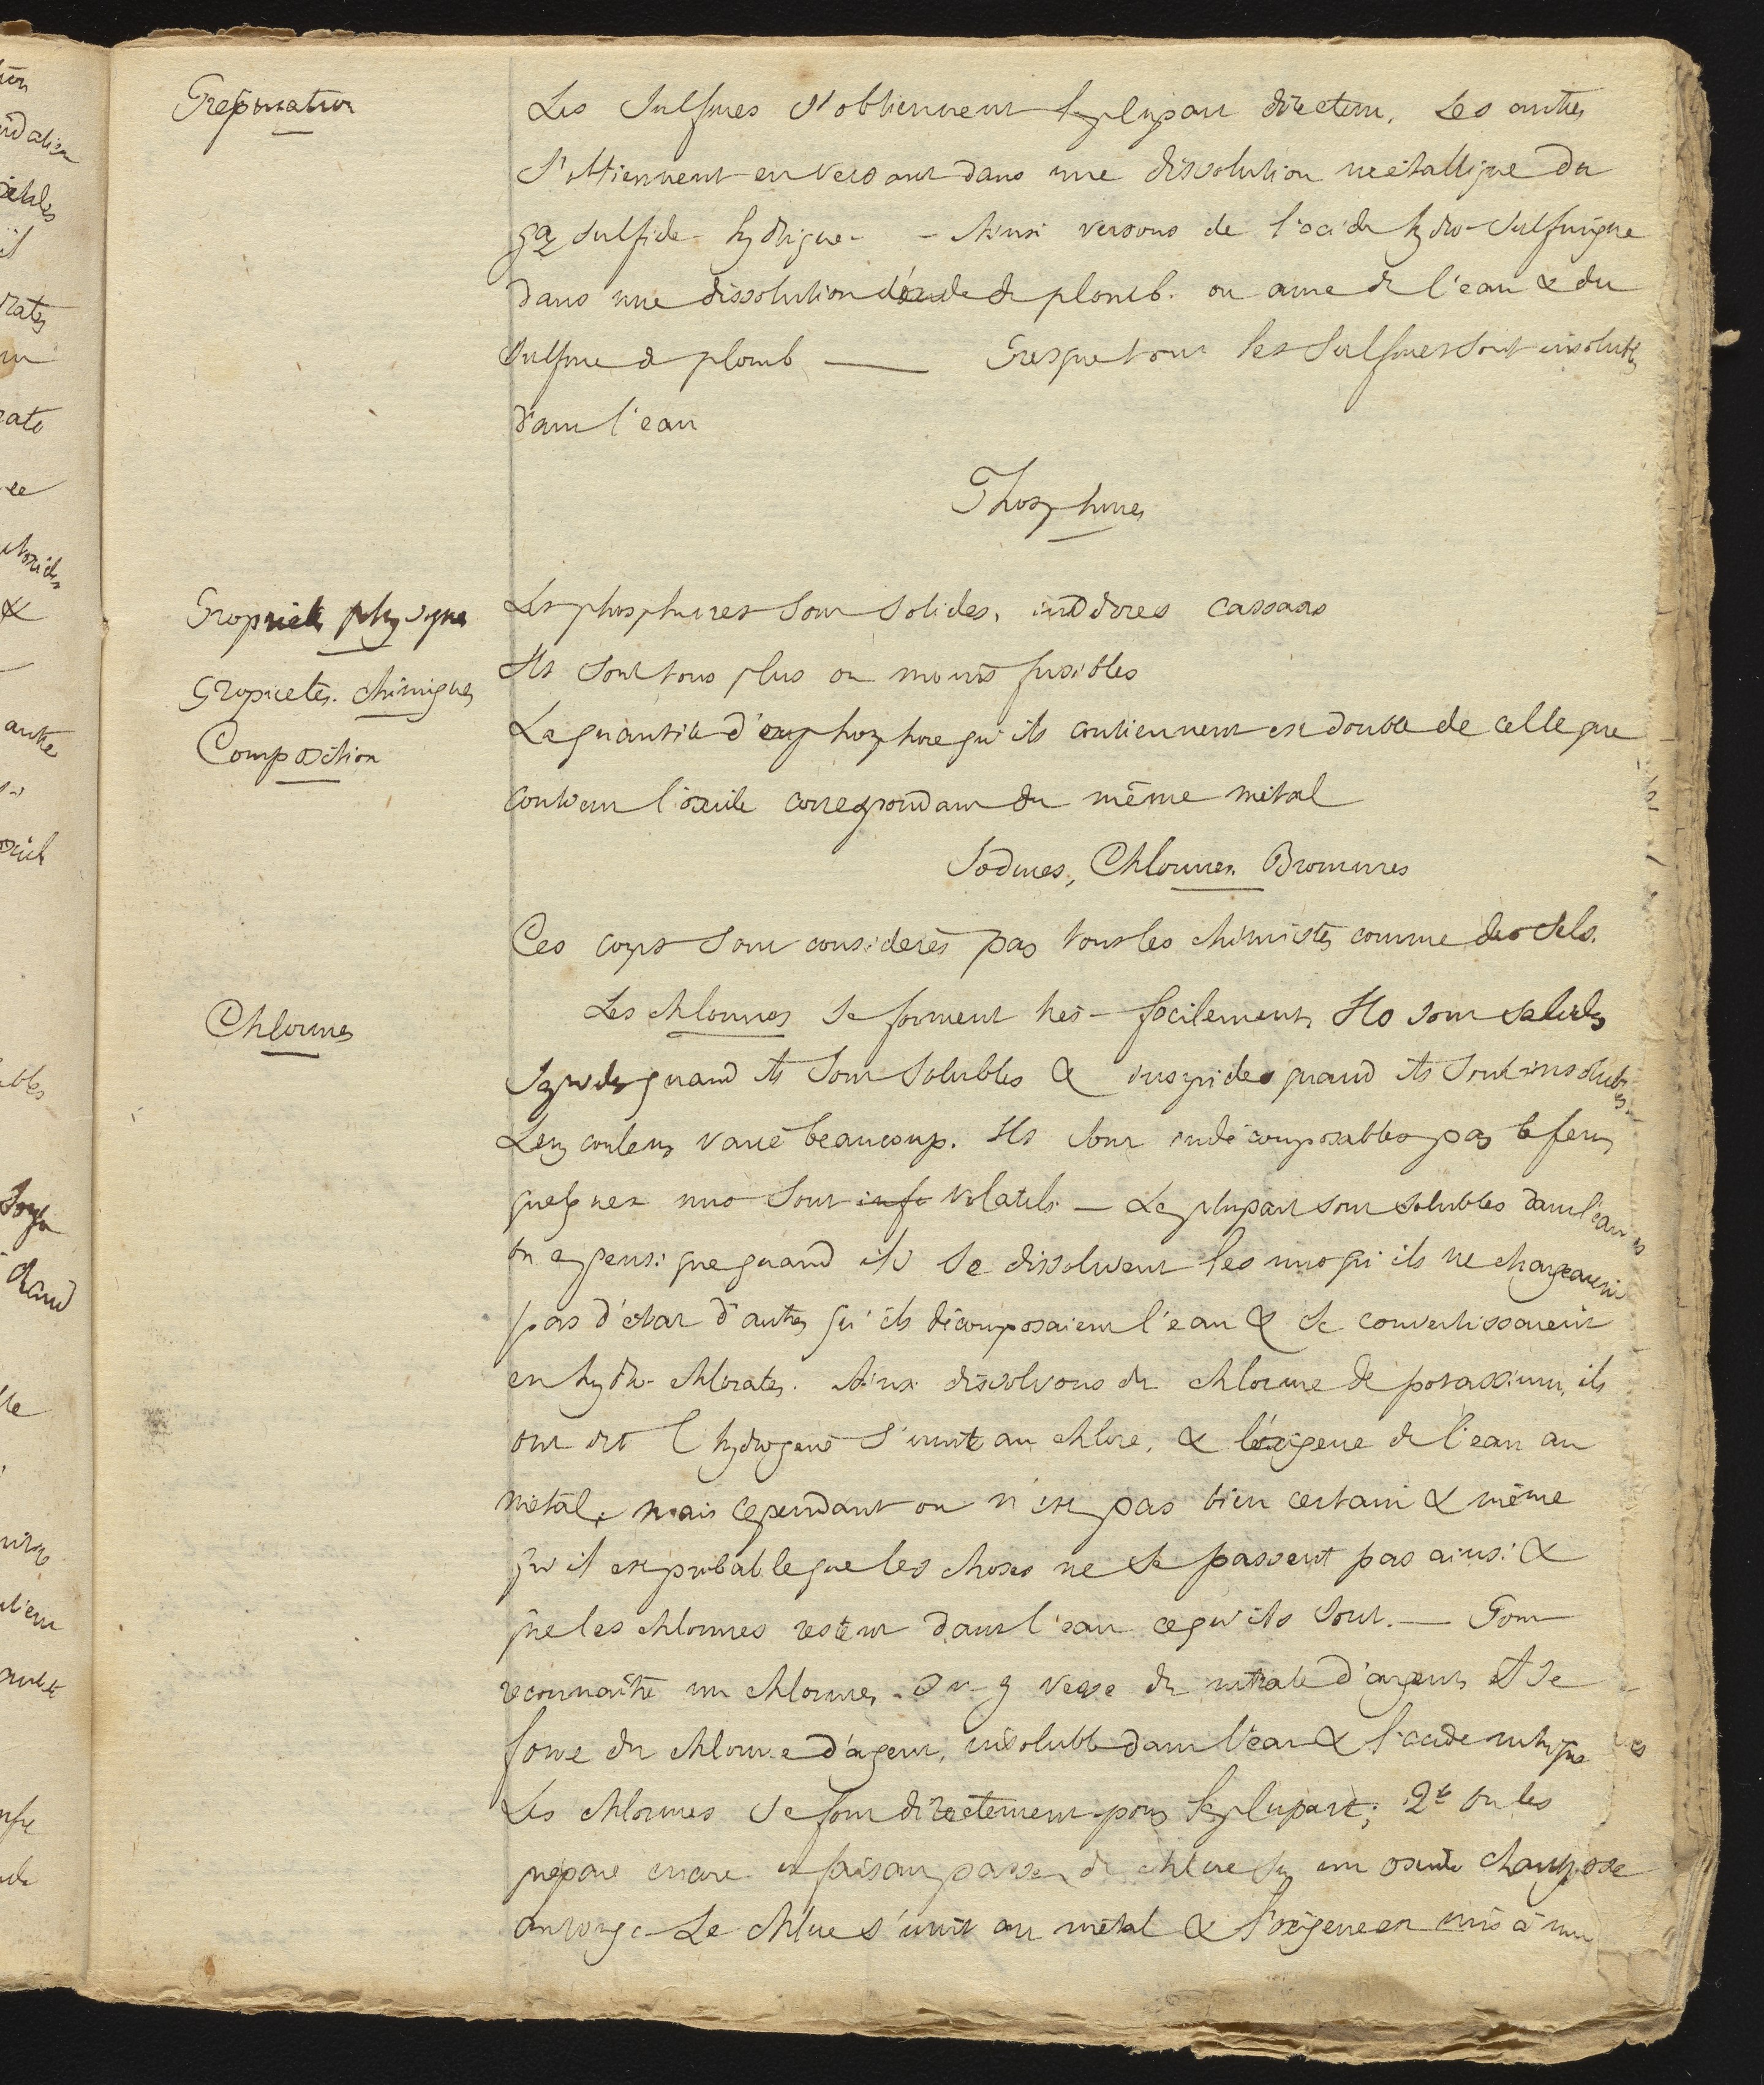 Préparation
Les Sulfures s'obtiennent la plupart directem. Les autres
s'obtiennent en versant dans une dissolution métallique du
gaz sulfide-hydrique - Ainsi versons de l'acide hydro-sulfurique
dans une dissolution d'oxide de plomb. on aura de l'eau & du
sulfure de plomb — Presque tous les Sulfures sont insolubles
dans l'eau
Phosphures
Propriétés physiques
Les phosphures sont solides, inodores cassans
Propriétés chimiques
Ils sont tous plus ou moins fusibles
Composition
La quantité de phosphore qu'ils contiennent est double de celle que
contient l'oxide correspondant du même métal
Iodures, Chlorures Bromures
Ces corps sont considérés par tous les chimistes comme des sels.
Chlorures
Les chlorures se forment très-facilement, Ils sont solides
sapides quand ils sont solubles & insipides quand ils sont insolubles
Leur couleur varie beaucoup. Ils sont indécomposables par le feu,
quelques uns sont volatils - La plupart sont solubles dans l'eau
on a pensé que quand ils se dissolvent les uns qu'ils ne changeaient
pas d'état d'autres qu'ils décomposaient l'eau & se convertissaient
en hydro-chlorates. Ainsi dissolvons du chlorure de potassium, ils
ont dit l'hydrogène s'unit au chlore, & l'oxigene de l'eau au
métal, mais cependant on n'est pas bien certain & même
qu'il est probable que les choses ne se passent pas ainsi &
que les chlorures restent dans l'eau ce qu'ils sont. — Pour
reconnaître un chlorures. On y verse du nitrate d'argent, et se
forme du chlorure d'argent, insoluble dans l'eau & l'acide nitrique
Les chlorures se font directement pour la plupart; 2° on les
prépare encore en faisant passer du chlore sur un oxide chauffé
au rouge - Le chlore s'unit au métal & l'oxigene est mis à nu